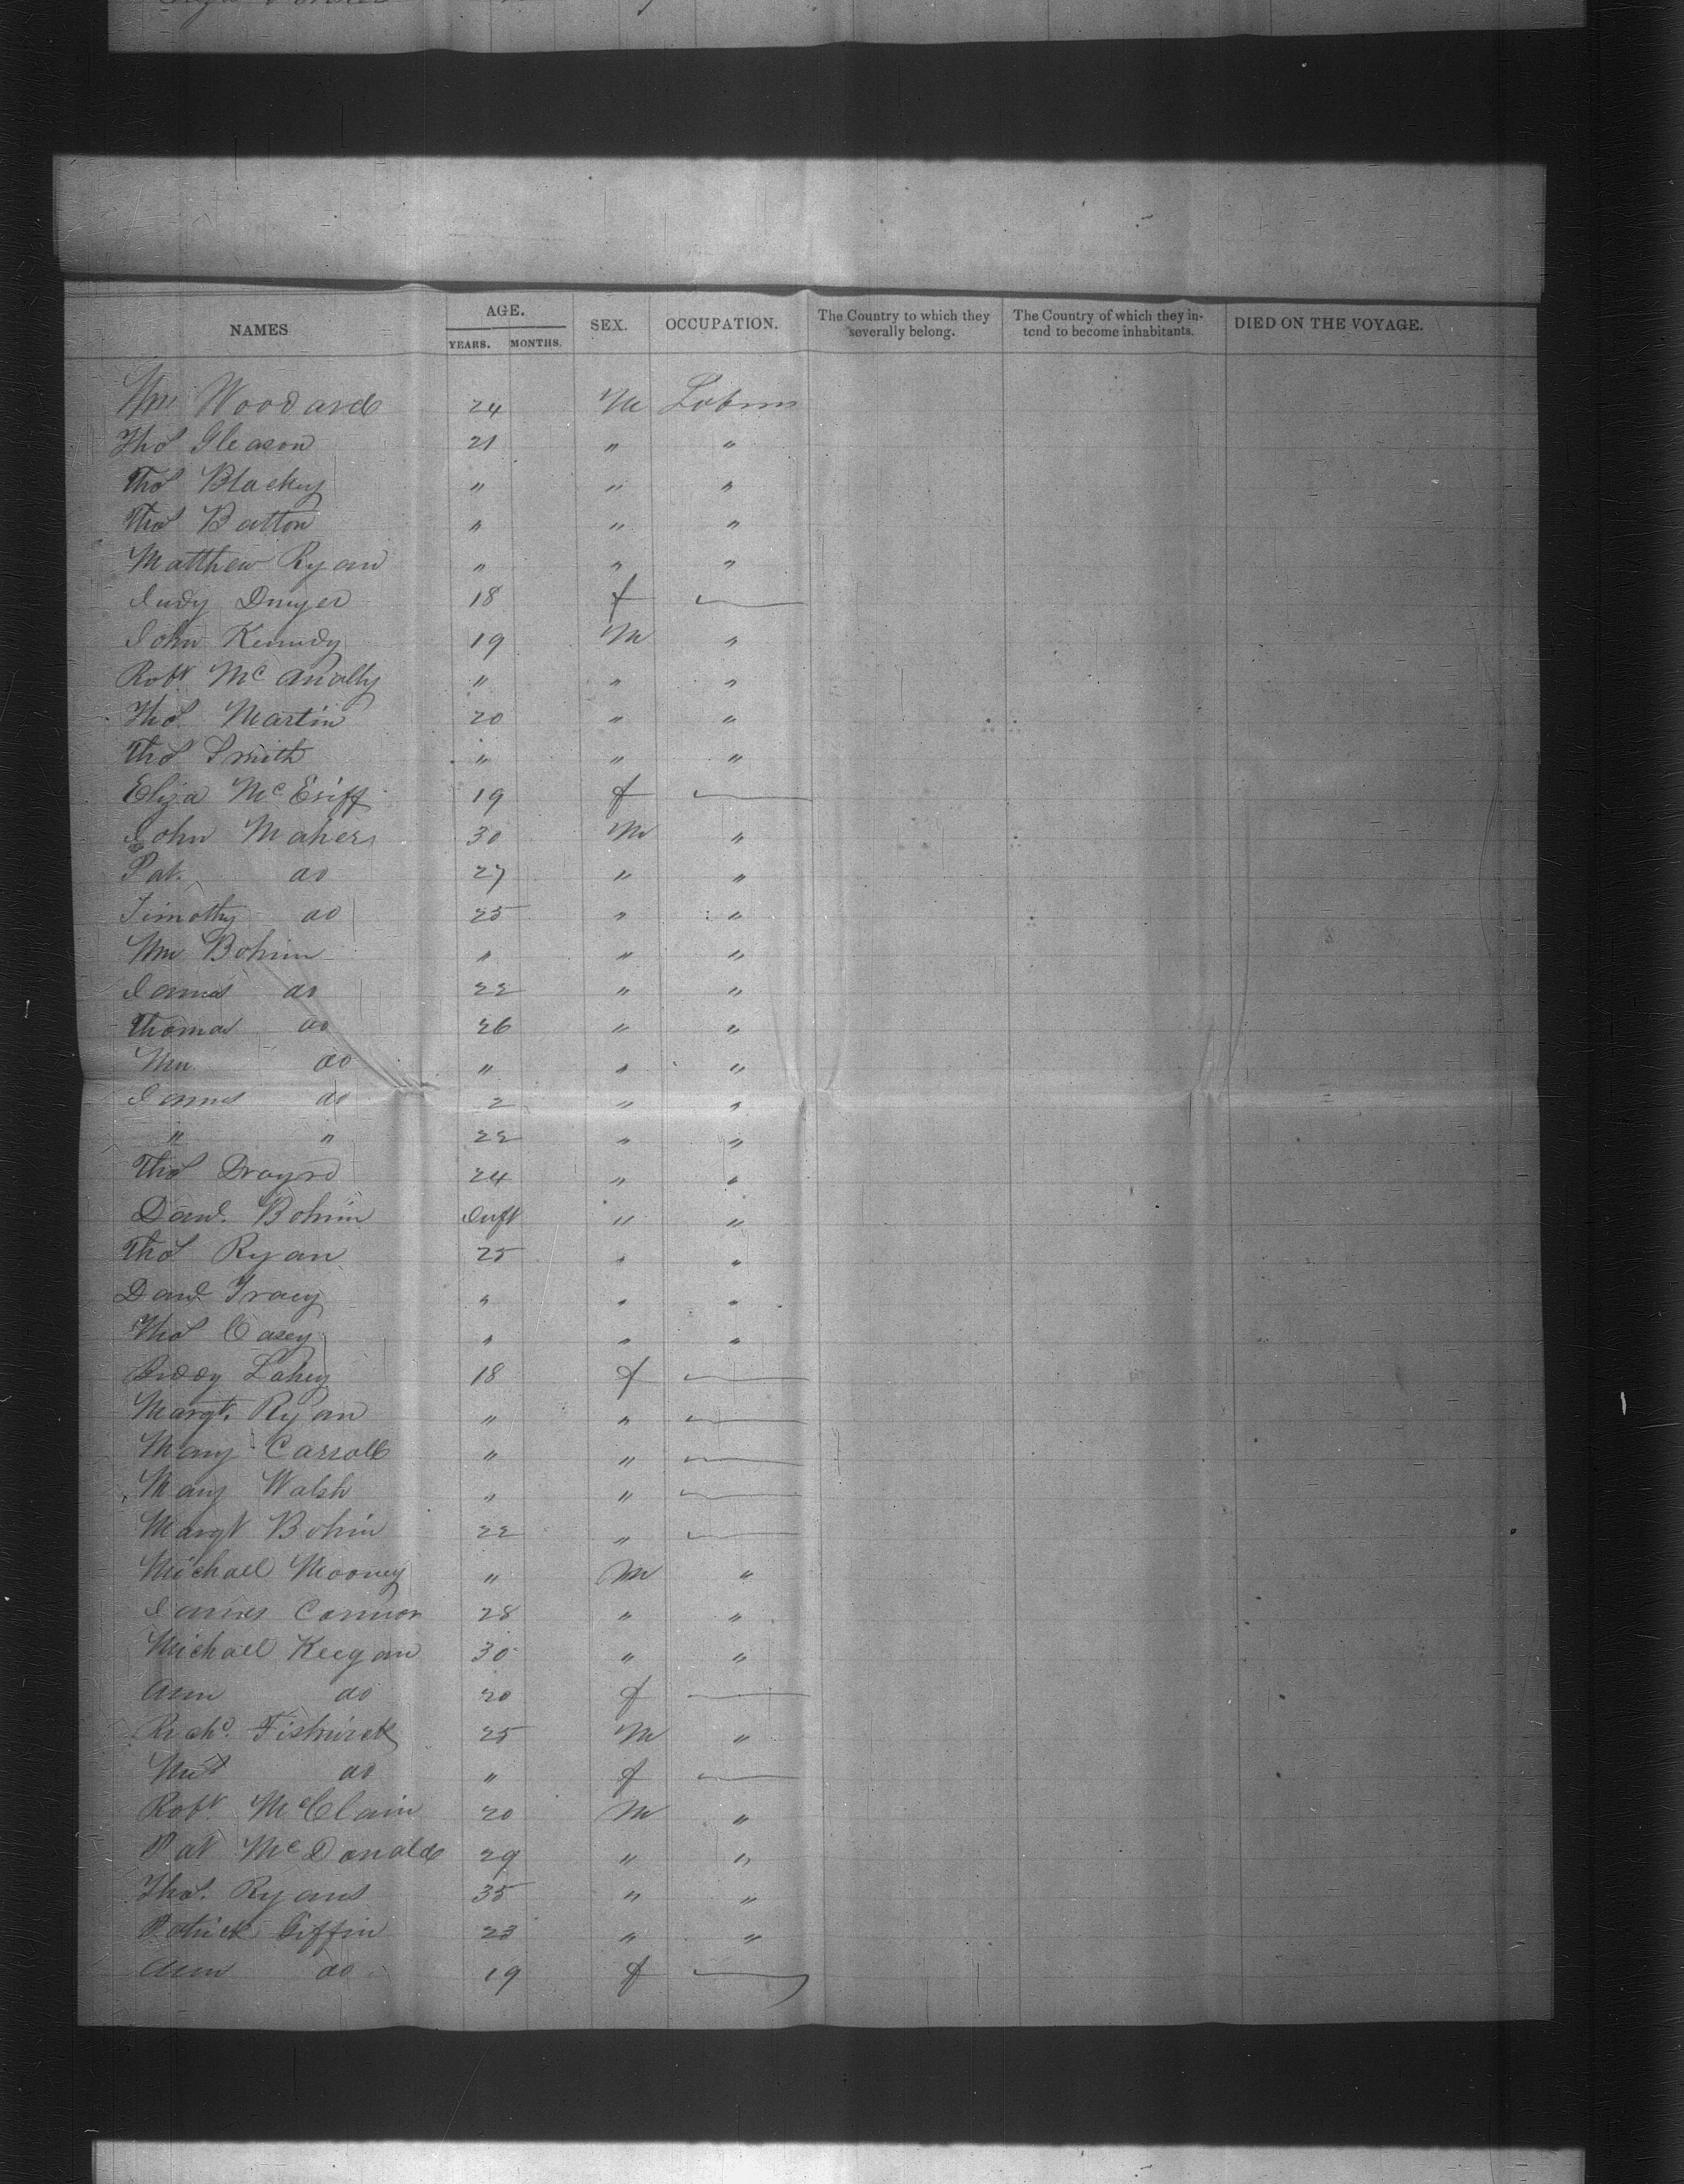 NAMES AGE. SEX. OCCUPATION. The Country to which they severally belong. The Country of which they intend to become inhabitants. DIED ON THE VOYAGE.
YEARS. MONTHS.
Wm Woodard 24 M
Thos Gleason 21 " "
Thos Blackey " " "
Thos Batton " " "
Matthew Ryan " " "
Judy Dwyer 18 f —
John Kennedy 19 M "
Robt Mc Anally " " "
Thos. Martin 20 " "
Thos Smith " " "
Eliza Mc 19 f —
John Maher 30 M "
Pat. do 27 " "
Timothy do 25 " "
Wm Bohim " " "
James do 22 " "
Thomas do 26 " "
Wm do " " "
James do 2 " "
" " 22 " "
Thos 24 " "
Danl. Bohim Inft " "
Thos Ryan 25 " "
Danl. Tracy " " "
Thos Casey " " "
Biddy Lahey 18 f —
Margt. Ryan " " —
Mary Carroll " " —
Mary Walsh " " —
Margt Bohin 22 " —
Michael Mooney " M "
James Connor 28 " "
Michael Keegan 30 " "
Ann do 20 f —
Richd. Fishwick 25 M "
do " f —
Robt McClain 20 M "
Pat McDonald 29 " "
Thos. Ryans 35 " "
Patrick Giffin 23 " "
Ann do 19 f —